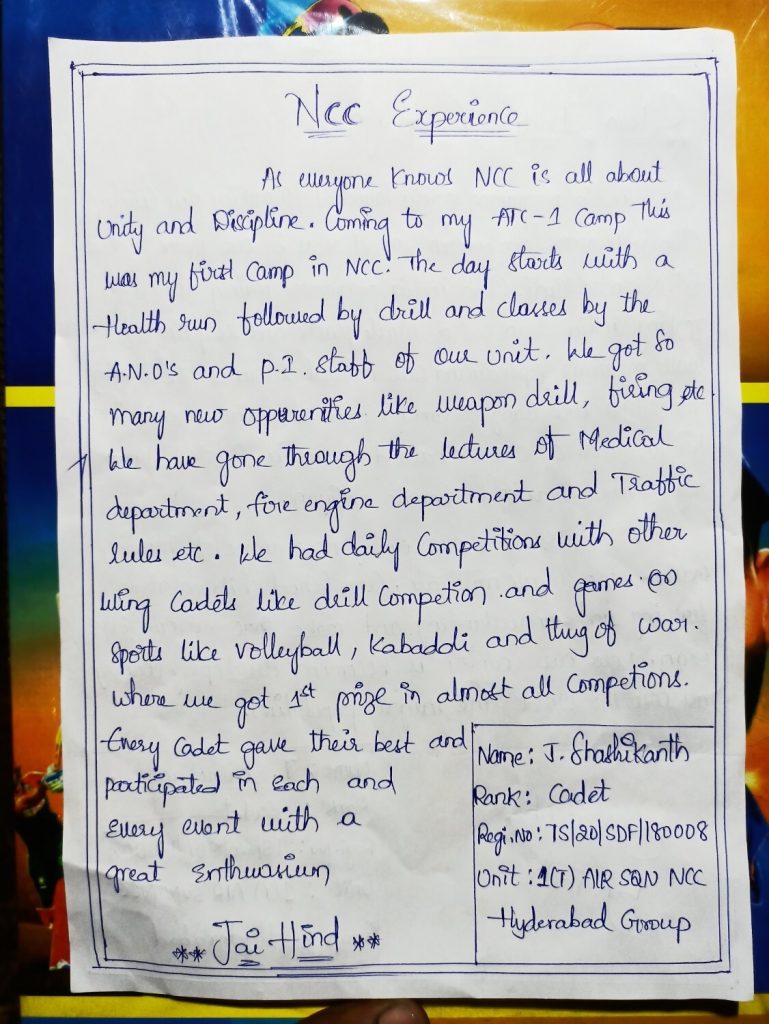 NCC Experience
As everyone knows NCC is all about
Unity and Discipline. Coming to my ATC-1 Camp This
was my first Camp in NCC. The day starts with a
Health run followed by drill and classes by the
A.N.O's and P.I. staff of our unit. We got so
many new oppurenities like weapon drill, firing etc.
We have gone through the lectures of Medical
department, fire engine department and Traffic
rules etc. We had daily Competitions with other
Wing Cadets like drill Competion and games or
sports like Volleyball, Kabaddi and thug of war.
where we got 1st prize in almost all Competions.
Every Cadet gave their best and
participated in each and
every event with a
great Enthusasium
** Jai Hind **
Name: J. Shashikanth
Rank: Cadet
Regi.No: TS/20/SDF/180008
Unit: 1(T) AIR SQN NCC
Hyderabad Group